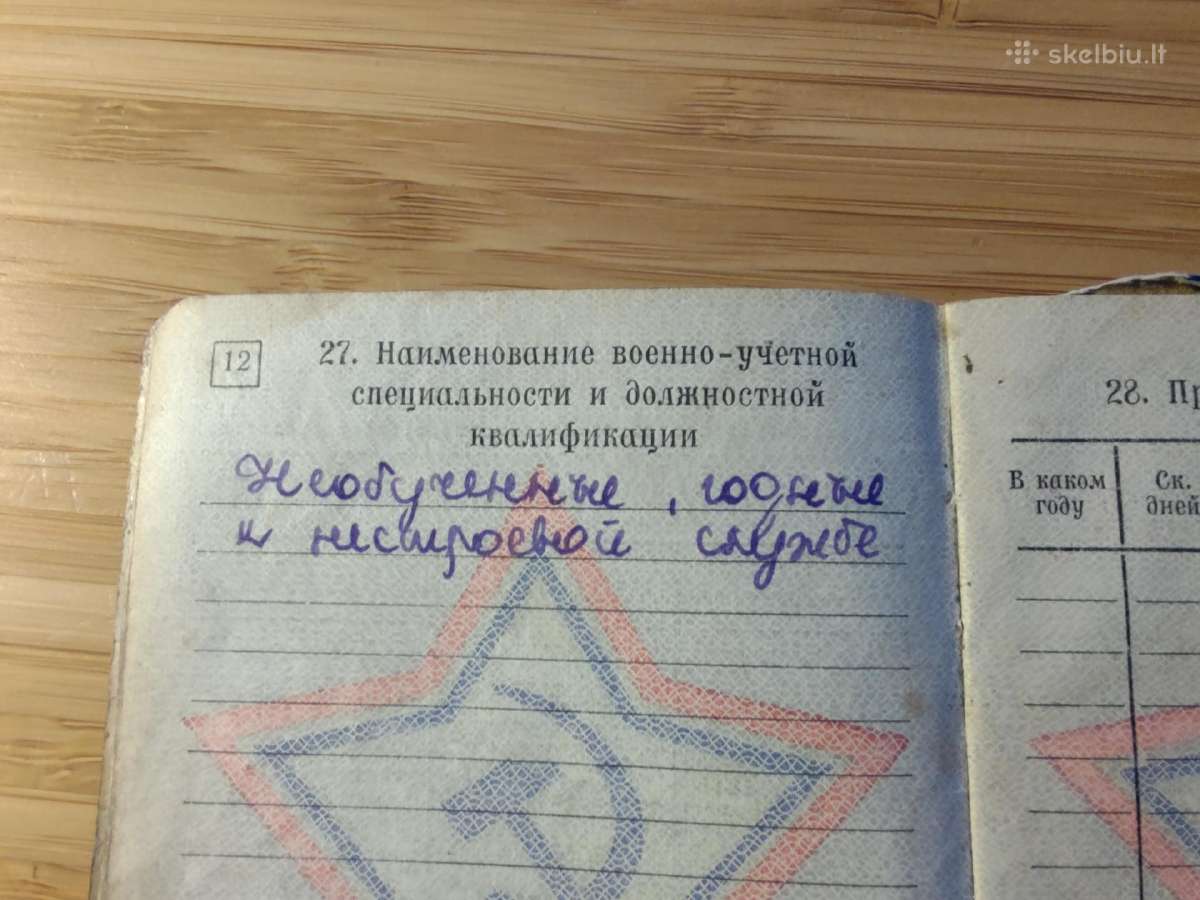 skelbiu.lt
12
27. Наименование военно-учетной
специальности и должностной
квалификации
Необученные, годные
к нестроевой службе
28. Пр
В каком
году
Ск.
дней